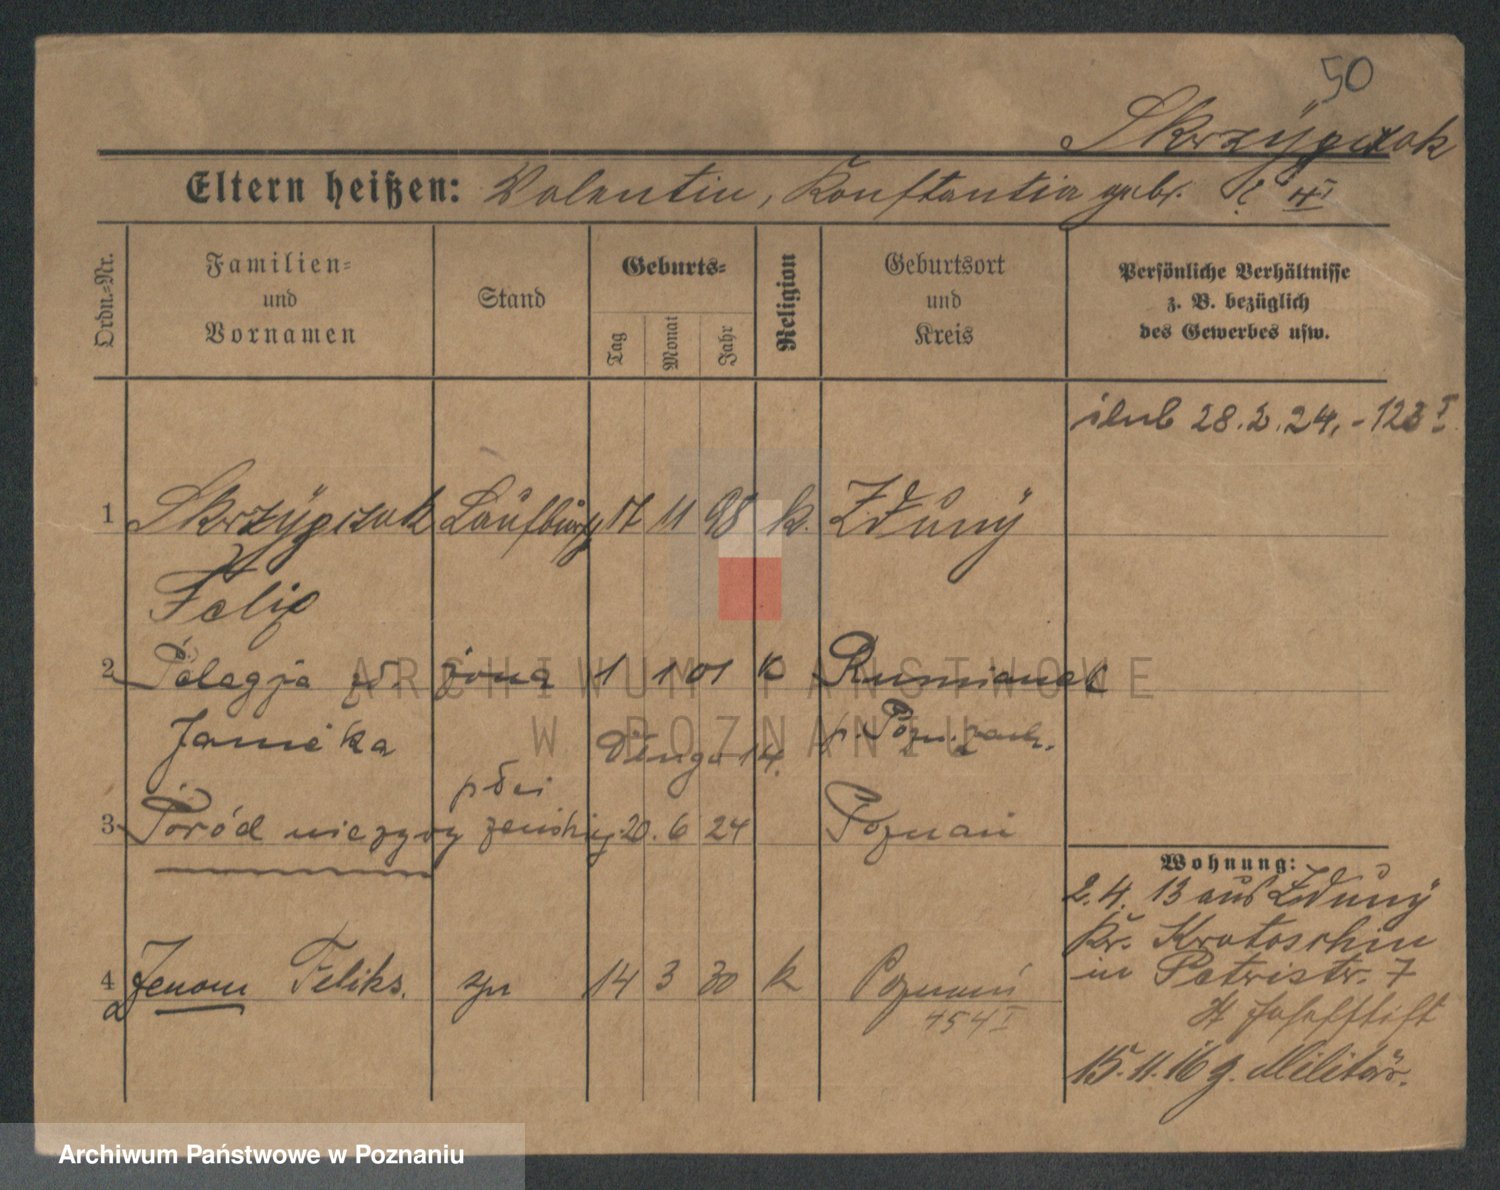 50
Skrzÿpczak
Eltern heißen: Valentin, Konstantia geb. ?
Ordn.-Nr.
Familien- und Vornamen
Stand
Geburts-
Tag
Monat
Jahr
Religion
Geburtsort und Kreis
Persönliche Verhältnisse
z. B. bezüglich
des Gewerbes usw.
ślub 28.2.24. - 123 I
1 Skrzÿpczak Laufbursch 17 11 98 k. Zdunÿ
Felix
2 Pelagja żona 1 1 01 k Rumianek
Janicka p. Pozn. zach.
płci
3 Poród nieżywy żeńskiej 20. 6 24 Poznań
Wohnung:
2.4. 13 aus Zdunÿ
Kr. Krotoschin
in Petristr. 7
4 Zenon Feliks. syn 14 3 30 k Poznań
454 I
Josefstift
15.11.16 z. Militär.
ARCHIWUM PAŃSTWOWE
W POZNANIU
Archiwum Państwowe w Poznaniu